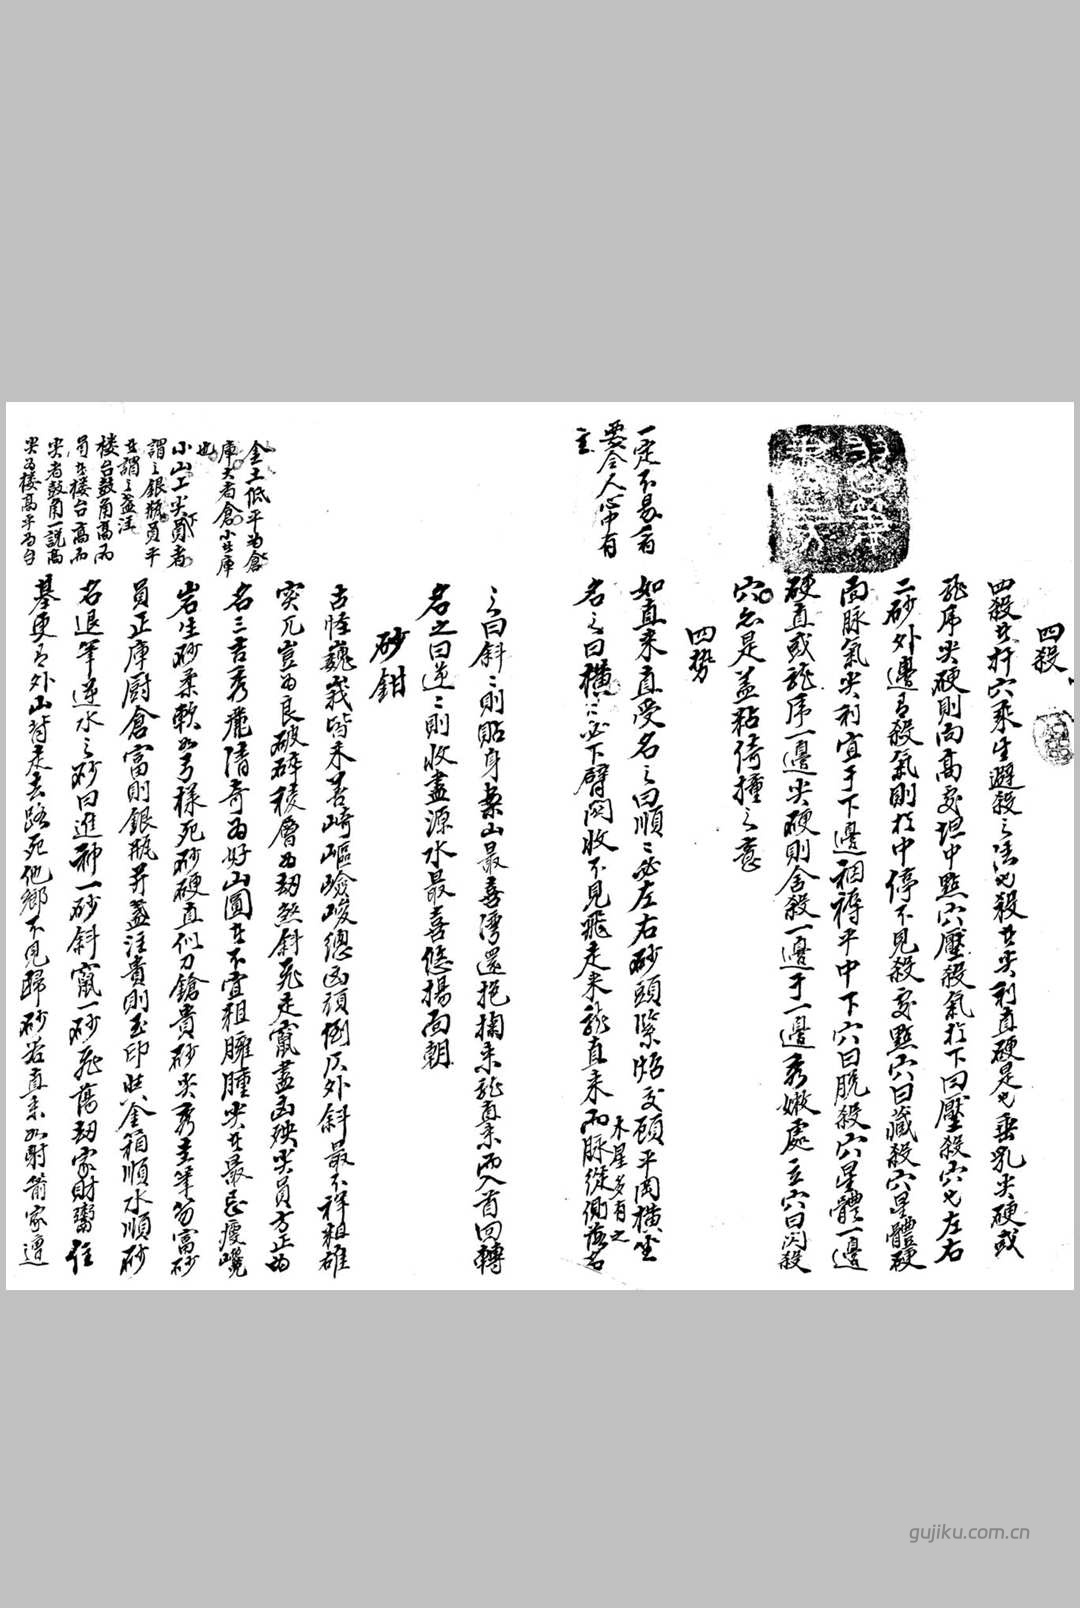 四殺
四殺者扦穴乘生避殺之法也殺者尖利直硬是也垂乳尖硬或
龍虎尖硬則向高處坦中點穴壓殺氣於下曰壓殺穴也左右
二砂外邊有殺氣則於中停不見殺處點穴曰藏殺穴星體硬
而脈氣尖利宜于下邊裀褥平中下穴曰脫殺穴星體一邊
硬直或龍虎一邊尖硬則舍殺一邊于一邊秀嫩處立穴曰閃殺
穴亦是盖粘倚撞之意
四勢
一定不易者
要令人心中有
主
如直來直受名之曰順順必左右砂頭緊恬交顧平岡橫坐
木星多有之
名之曰橫橫必下臂関收不見飛走来龍直来而脉從側落名
之曰斜斜則貼身案山最喜湾還抱掬来龍直来而入首回轉
名之曰逆逆則收盡源水最喜悠揚面朝
砂鉗
古怪巍峩皆未善崎嶇嶮峻總凶頑倒仄外斜最不祥粗雄
突兀豈為良破碎稜層為劫煞斜飛走竄盡凶殃尖員方正為
名三吉秀麗清奇為好山圓者不宜粗臃腫尖者最忌瘦巉
岩生砂柔軟如弓樣死砂硬直似刀鎗貴砂尖秀圭筆笏富砂
員正庫厨倉富則銀瓶并盞注貴則玉印與金箱順水順砂
名退筆逆水之砂曰進神一砂斜竄一砂飛蕩劫家財鬻住
基更有外山背走去路死他鄉不見歸砂若直来如射箭家遭
金土低平為倉
庫大者倉小者庫
也
小山上尖員者
謂之銀瓶員平
者謂之盞注
楼台鼓角高而
員者樓台高而
尖者鼓角一説高
尖為樓高平為台
gujiku.com.cn